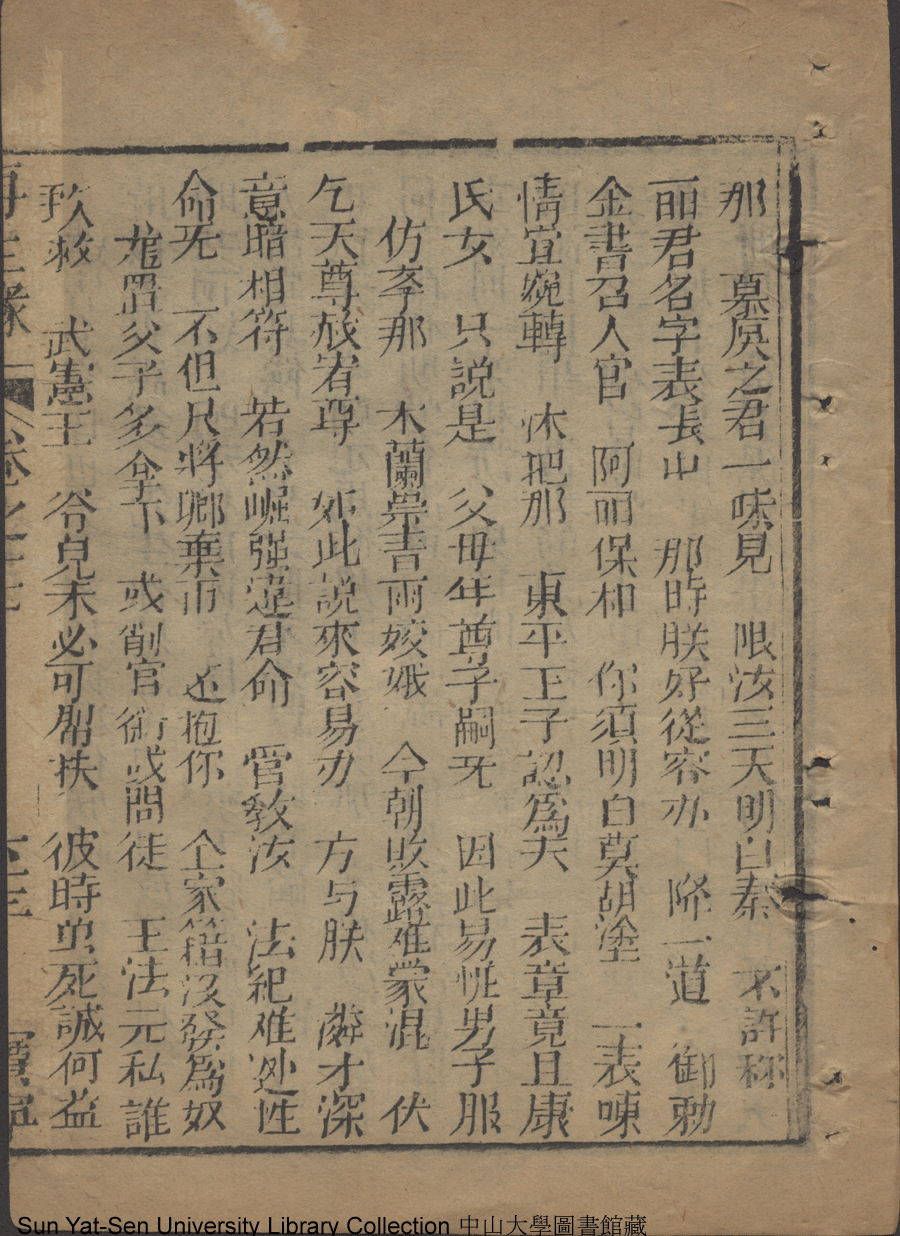 那 慕虞之君一味見 限汝三天明白奏 不許称
丽君名字表長山 那時朕好從容办 降一道 御勅
金書召人官 阿丽保和 你須明白莫胡塗 一表陳
情宜婉轉 休把那 東平王子認爲夫 表章竟且康
氏女 只説是 父母年尊子嗣无 因此易性男子服
仿孝那 木蘭崇吉雨姣娥 今朝敗露难蒙混 伏
乞天尊赦宥尊 如此説來容易办 方与朕 憐才深
意暗相符 若然崛强違君命 管教汝 法紀难逃性
命无 不但尺將卿棄市 还抱你 仝家籍没發爲奴
龍置父子多拿下 或削官銜或問徒 王法元私誰
救 武憲王 令兒未必可帮扶 彼時虽死誠何益
再生緣 卷之十七